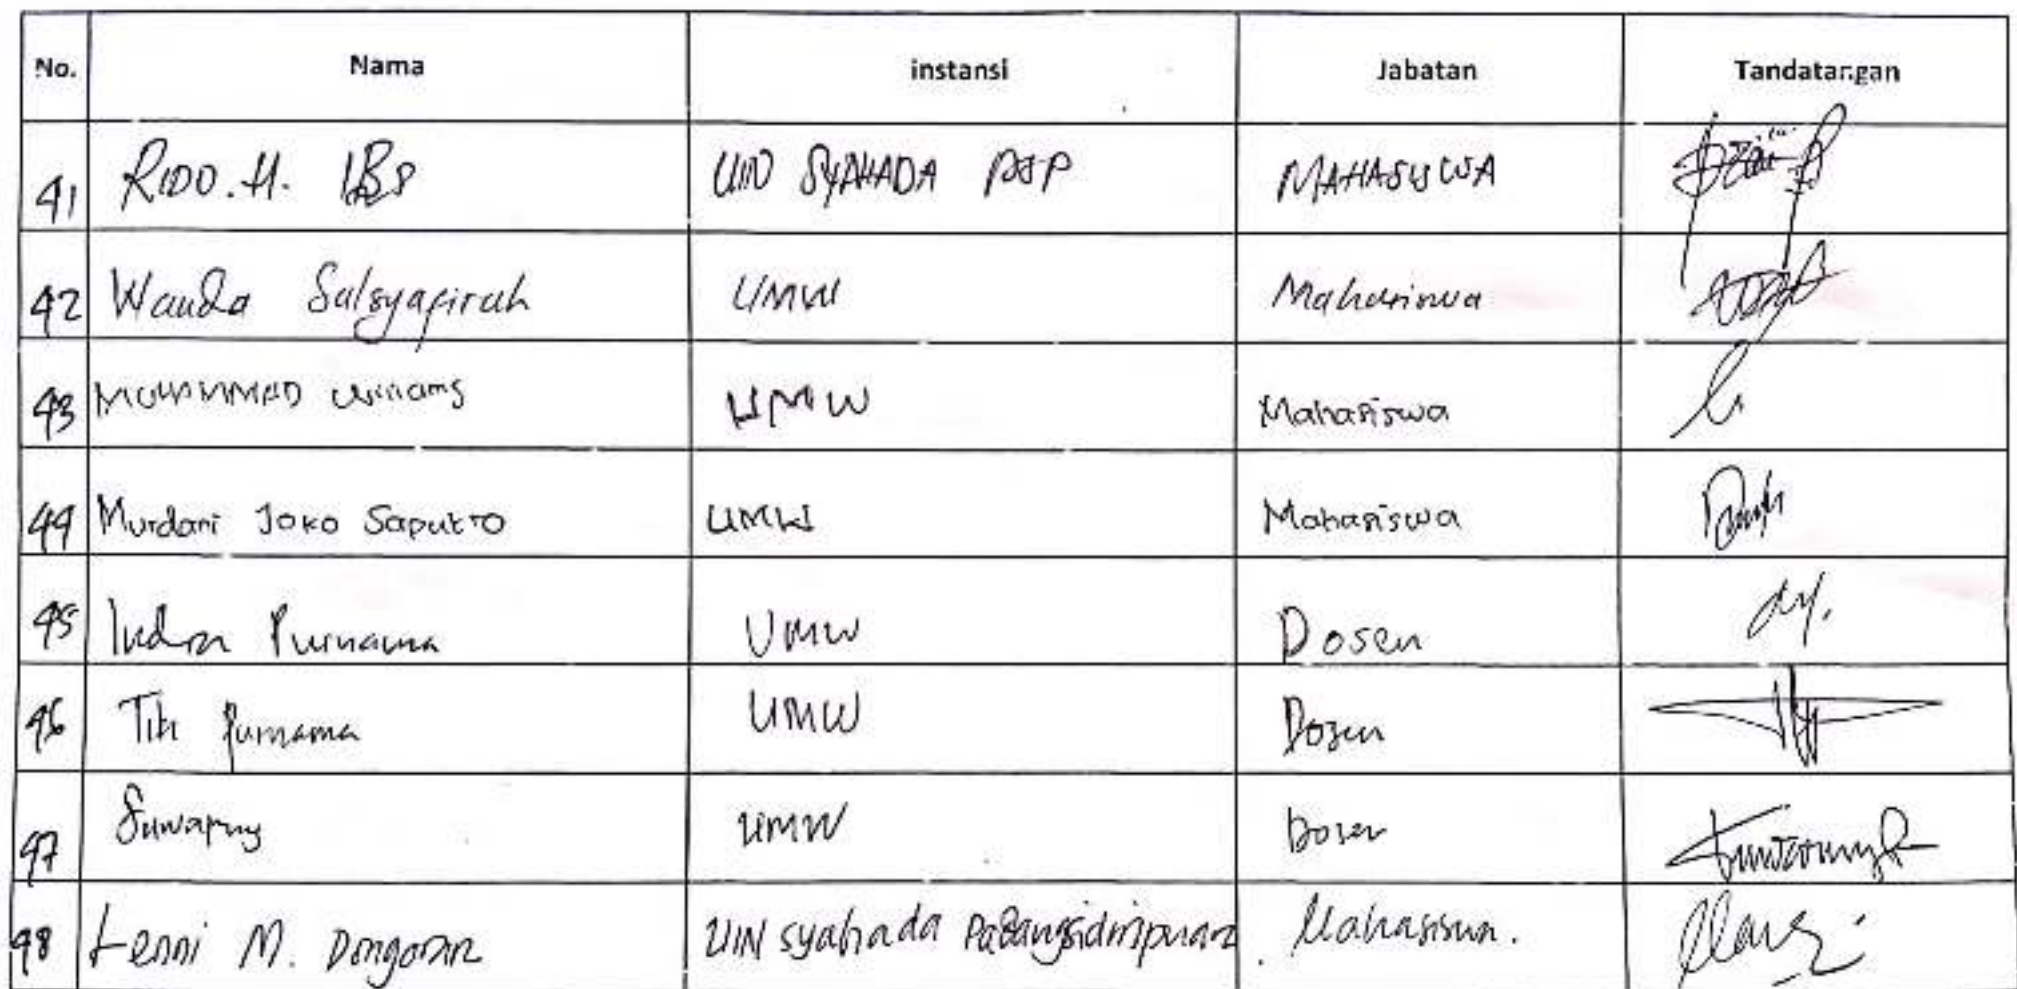 No. Nama instansi Jabatan Tandatangan
41 RIDO. H. UIN SYAHADA PSP MAHASISWA
42 Wanda Salsyafirah UMW Mahasiswa
43 MUHAMMAD UMW Mahasiswa
44 Murdani Joko Saputro UMW Mahasiswa
45 Indra Purnama UMW Dosen
46 Titi Purnama UMW Dosen
47 UMW Dosen
48 Lenni M. Dongoran UIN syahada Padangsidimpuan Mahasiswa.